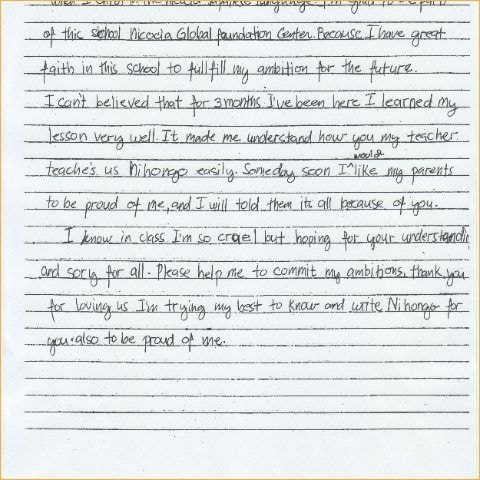 of this school Nicocia Global foundation Center. Because I have great
faith in this school to fullfill my ambition for the future.
I can't believed that for 3 months. I've been here I learned my
lesson very well. It made me understand how you my teacher
teache's us Nihongo easily. Someday soon I would like my parents
to be proud of me, and I will told them its all because of you.
I know in class I'm so cruel but hoping for your understandi
and sorry for all. Please help me to commit my ambitions. thank you
for loving us I'm trying my best to know and write Nihongo for
you. also to be proud of me.